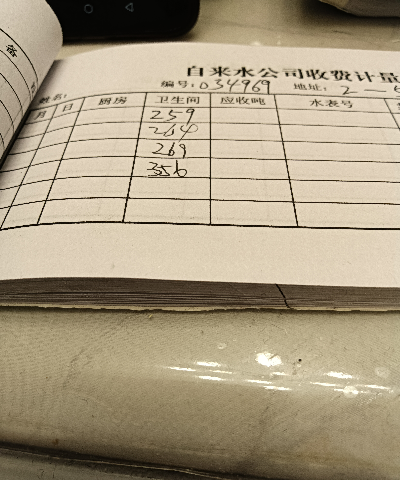 备
自来水公司收费计量
编号:034969 地址:2-5
姓名:
月 日 厨房 卫生间 应收吨 水表号
259
264
269
356